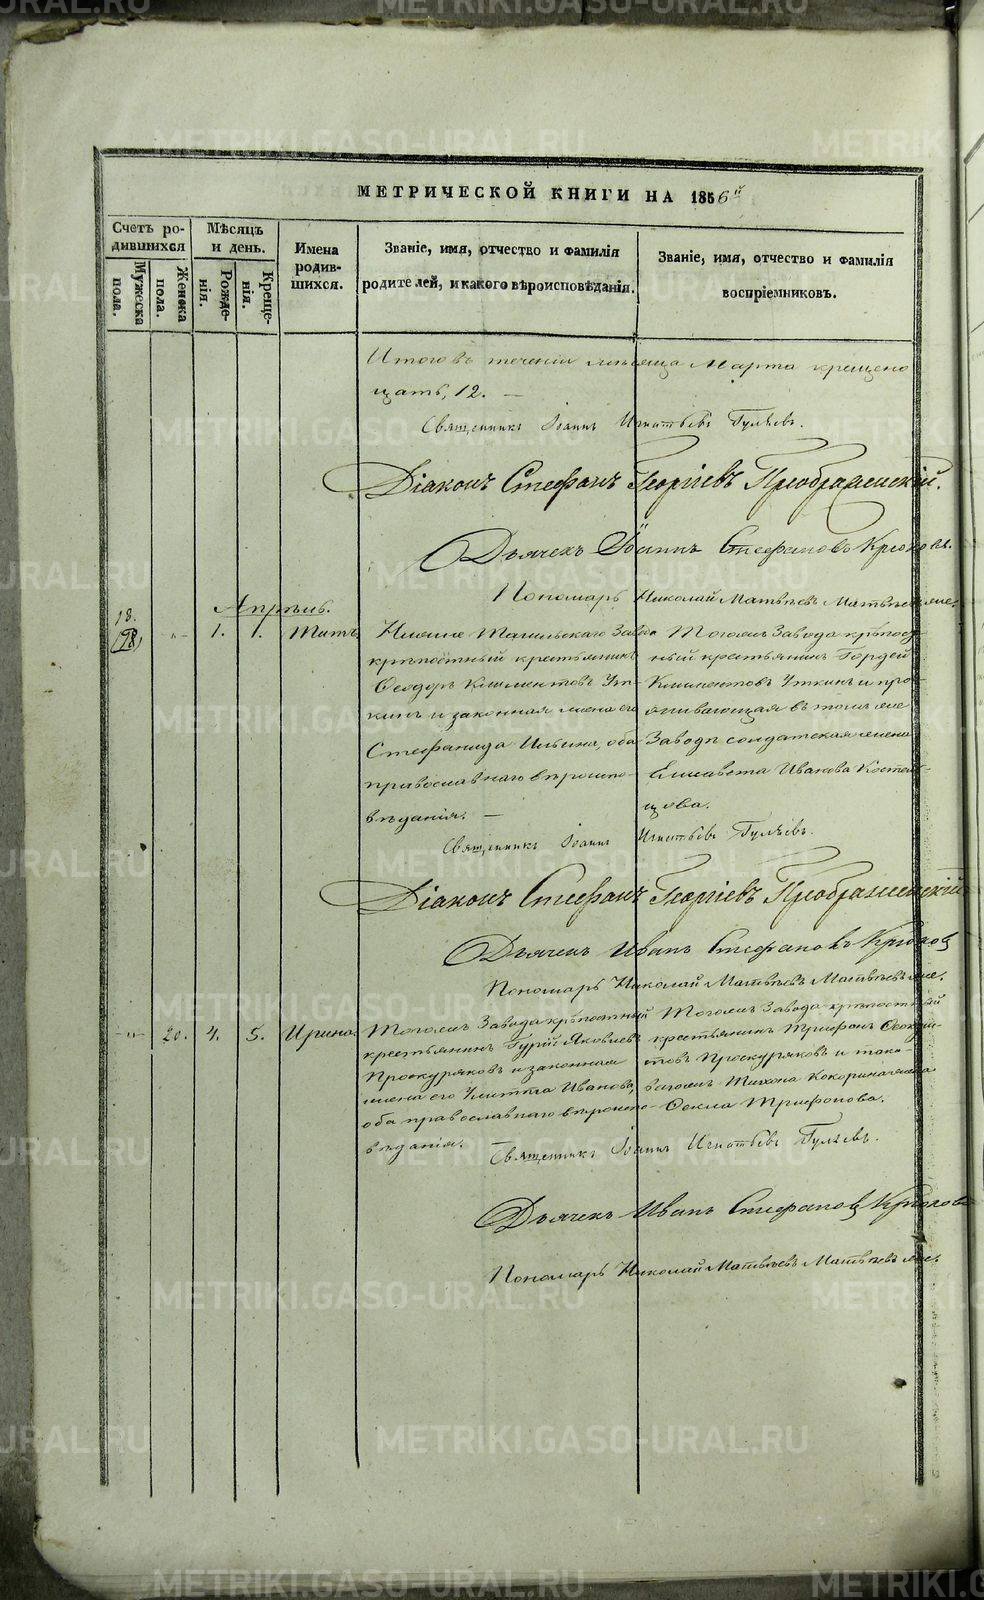 METRIKI.GASO-URAL.RU
МЕТРИЧЕСКОЙ КНИГИ НА 1856й
Счетъ ро-
дившихся
Мѣсяцъ
и день.
Имена
родив-
шихся.
Званіе, имя, отчество и фамилія
родителей, и какого вѣроисповѣданія.
Званіе, имя, отчество и фамилія
воспріемниковъ.
Мужеска
пола.
Женска
пола.
Рожде-
нія.
Креще-
нія.
Итого въ теченіи мѣсяца Марта крещено
12. —
Священникъ Іоаннъ Игнатьевъ Гуляевъ.
Діаконъ Стефанъ Георгіевъ Преображенскій.
Дьячекъ Іоаннъ Стефановъ Крюковъ.
Пономарь Николай Матвѣевъ
Апрѣль.
18.
(18) „ 1. 1. Титъ
Нижне Тагильскаго Завода
крѣпостный крестьянинъ
Ѳеодоръ Климентовъ Ут-
кинъ и законная жена его
Стефанида Ильина, оба
православнаго вѣроиспо-
вѣданія. —
Тогожъ Завода крѣпост-
ный крестьянинъ Гордей
Климентовъ Уткинъ и про-
живающая въ томъ же
Заводѣ солдатская жена
Елисавета Иванова
Священникъ Іоаннъ Игнатьевъ Гуляевъ.
Діаконъ Стефанъ Георгіевъ Преображенскій
Дьячекъ Иванъ Стефановъ Крюковъ
Пономарь Николай Матвѣевъ
„ 20. 4. 5. Ирина
Тогожъ Завода крѣпостный
крестьянинъ Гурій Яковлевъ
Проскуряковъ и законная
жена его Улитта Иванова,
оба православнаго вѣроиспо-
вѣданія.
Тогожъ Завода крѣпостный
крестьянинъ Трифонъ Ѳеокти-
стовъ Проскуряковъ и тако-
вагожъ Тихона Кокорина жена
Ѳекла Трифонова.
Священникъ Іоаннъ Игнатьевъ Гуляевъ.
Дьячекъ Иванъ Стефановъ Крюковъ
Пономарь Николай Матвѣевъ